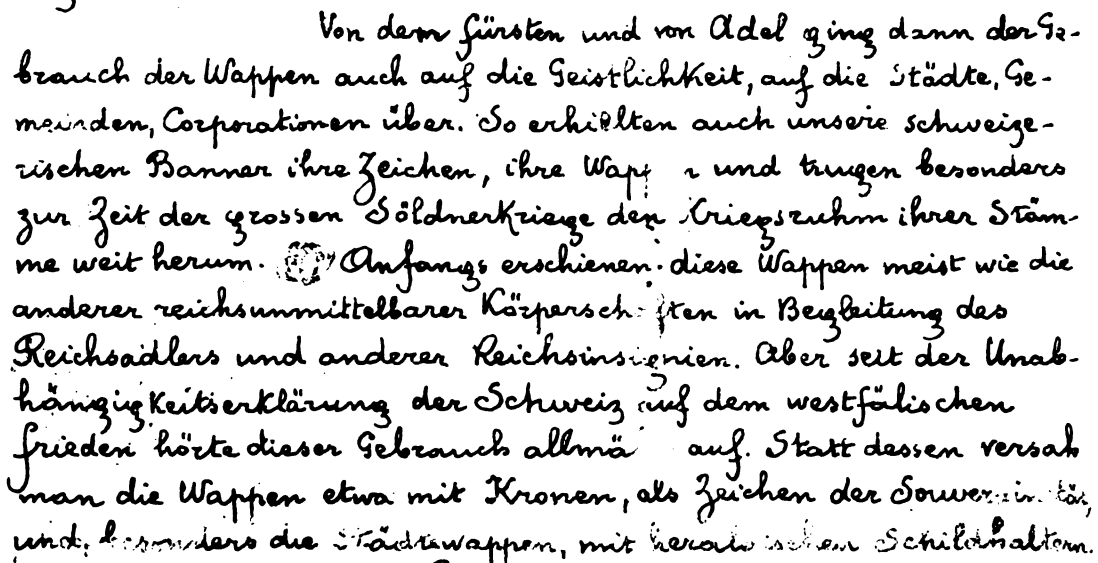 Von dem fürsten und von Adel ging dann der Ge-
brauch der Wappen auch auf die Geistlichkeit, auf die Städte, Ge-
meinden, Corporationen über. So erhielten auch unsere schweize-
rischen Banner ihre Zeichen, ihre und trugen besonders
zur Zeit der grossen Söldnerkriege den Kriegsruhm ihrer Stäm-
me weit herum. Anfangs erschienen diese Wappen meist wie die
anderer reichsunmittelbarer Körperschaften in Begleitung des
Reichsadlers und anderer Reichsinsignien. Aber seit der Unab-
hängigkeitserklärung der Schweiz auf dem westfälischen
frieden hörte dieser Gebrauch auf. Statt dessen versah
man die Wappen etwa mit Kronen, als Zeichen der Souverainität,
und, besonders die Städtewappen, mit heraldischen Schildhaltern.